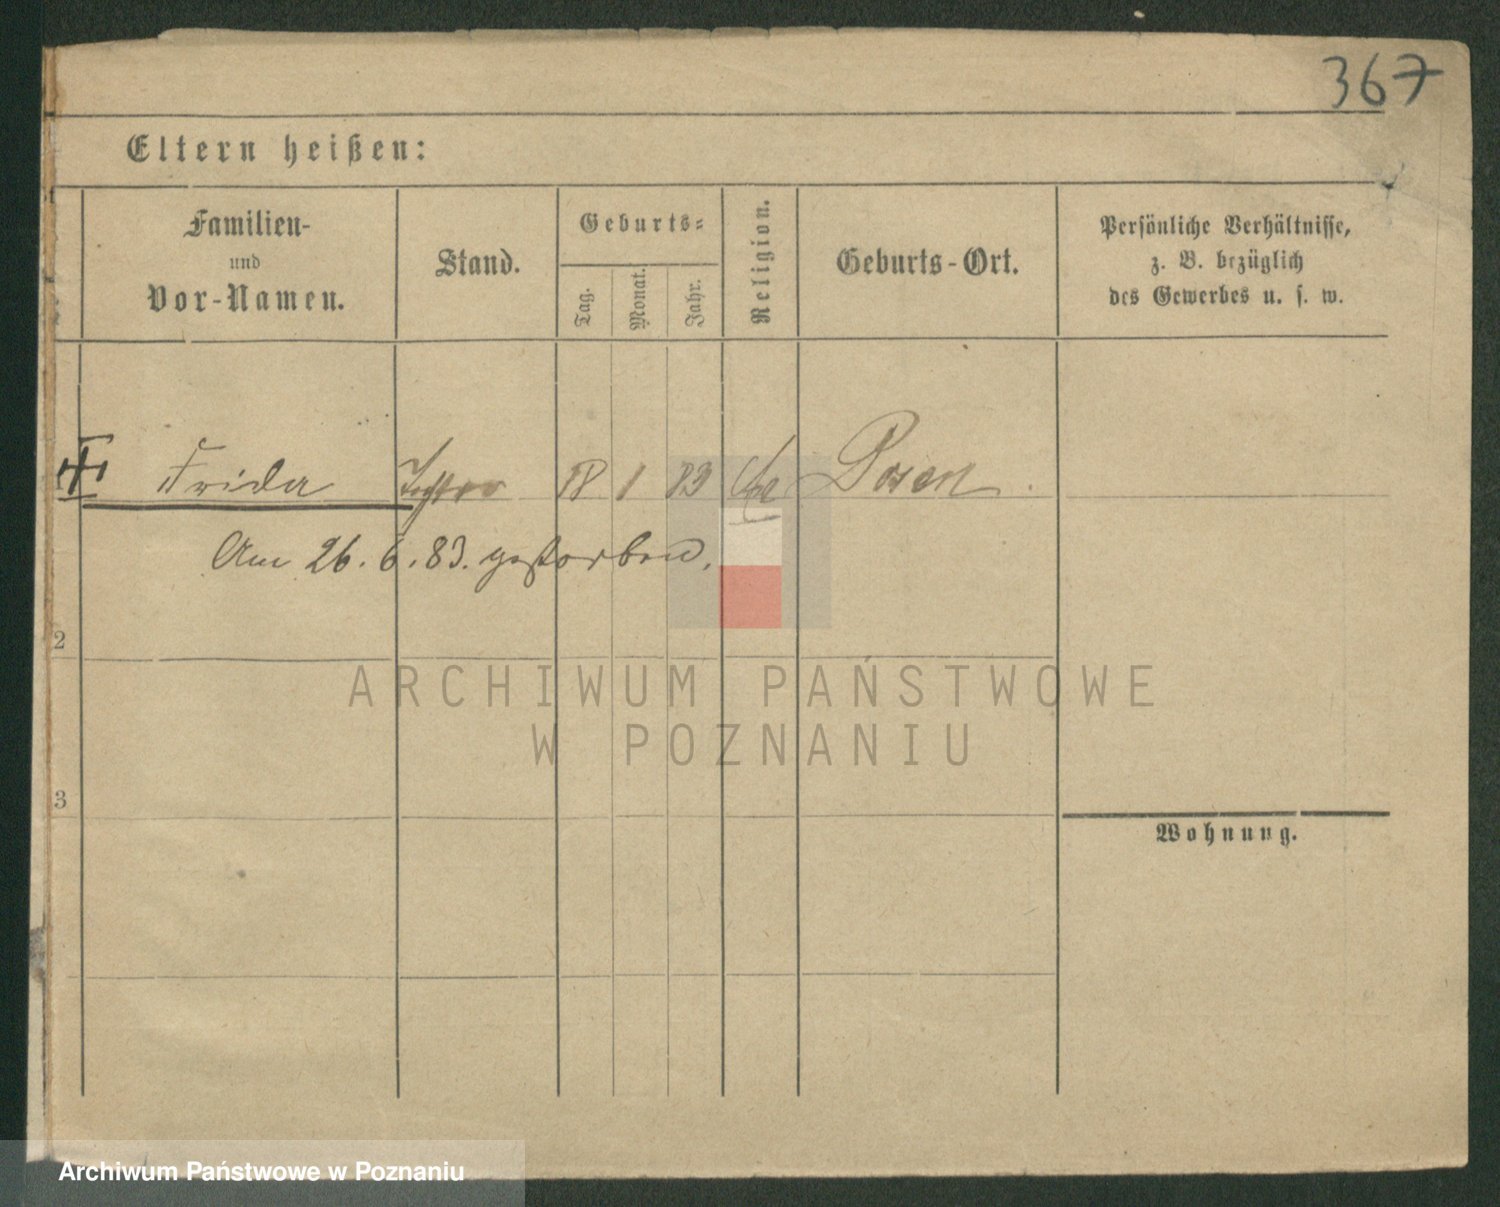 367
Eltern heißen:
Familien-
und
Vor-Namen.
Stand.
Geburts-
Tag.
Monat.
Jahr.
Religion.
Geburts-Ort.
Persönliche Verhältnisse,
z. B. bezüglich
des Gewerbes u. s. w.
Frida 18 1 83 Posen
Am 26. 6. 83. gestorben.
2
ARCHIWUM PAŃSTWOWE
W POZNANIU
3
Wohnung.
Archiwum Państwowe w Poznaniu